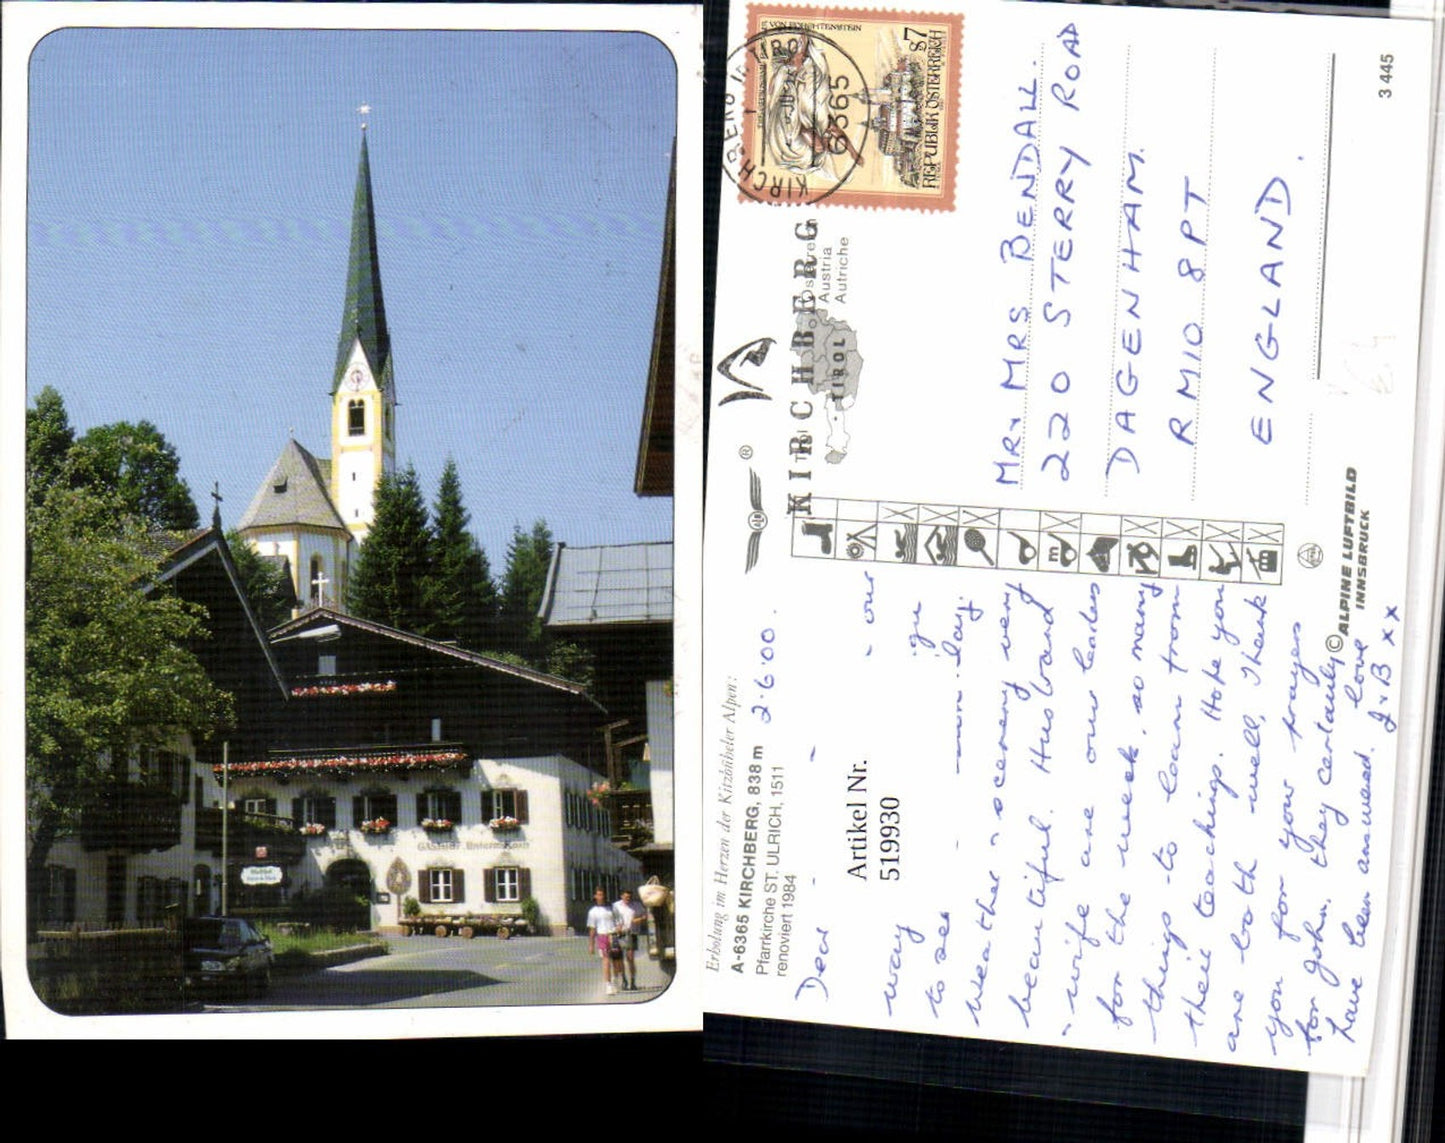 GASTHOF
Erholung im Herzen der Kitzbüheler Alpen:
A-6365 KIRCHBERG, 838 m
Pfarrkirche ST. ULRICH, 1511
renoviert 1984
2·6·00.
Dea
our
way
to see
weather & scenery very
beautiful. Husband
& wife are our leaders
for the week, so many
things to learn from
their teachings. Hope you
are both well, Thank
you for your prayers
for John, they certainly
have been answered. love
J. B xx
Artikel Nr.
519930
®
KIRCHBERG
TIROL
Austria
Autriche
KIRCHBERG IN TIROL
6365
REPUBLIK ÖSTERREICH
S7
MR & MRS BENDALL.
220 STERRY ROAD
DAGENHAM.
RM10 8PT
ENGLAND.
© ALPINE LUFTBILD
INNSBRUCK
3 445